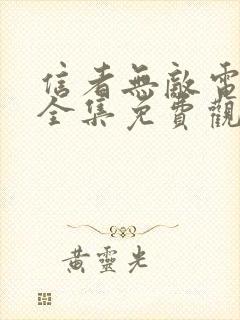 信者無敵電
全集免費觀
黃靈光